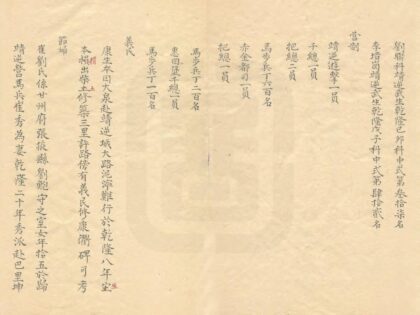 劉聯科靖逆武生乾隆己卯科中式第叁拾柒名
李培蘭靖逆武生乾隆戊子科中式第肆拾貳名
營制
靖逆遊擊一員
千總一員
把總二員
馬步兵丁六百名
赤金都司一員
把總一員
馬步兵丁二百名
惠回堡千總一員
馬步兵丁一百名
義民
康生平因大泉赴靖逆城大路泥濘難行於乾隆八年
本願出柴土修築三里許路傍有義民修康衢碑可考
節婦
崔劉氏係甘州府張掖縣劉乾守之室女年拾五於歸
靖逆營馬兵崔秀為妻乾隆二十年秀派赴巴里坤